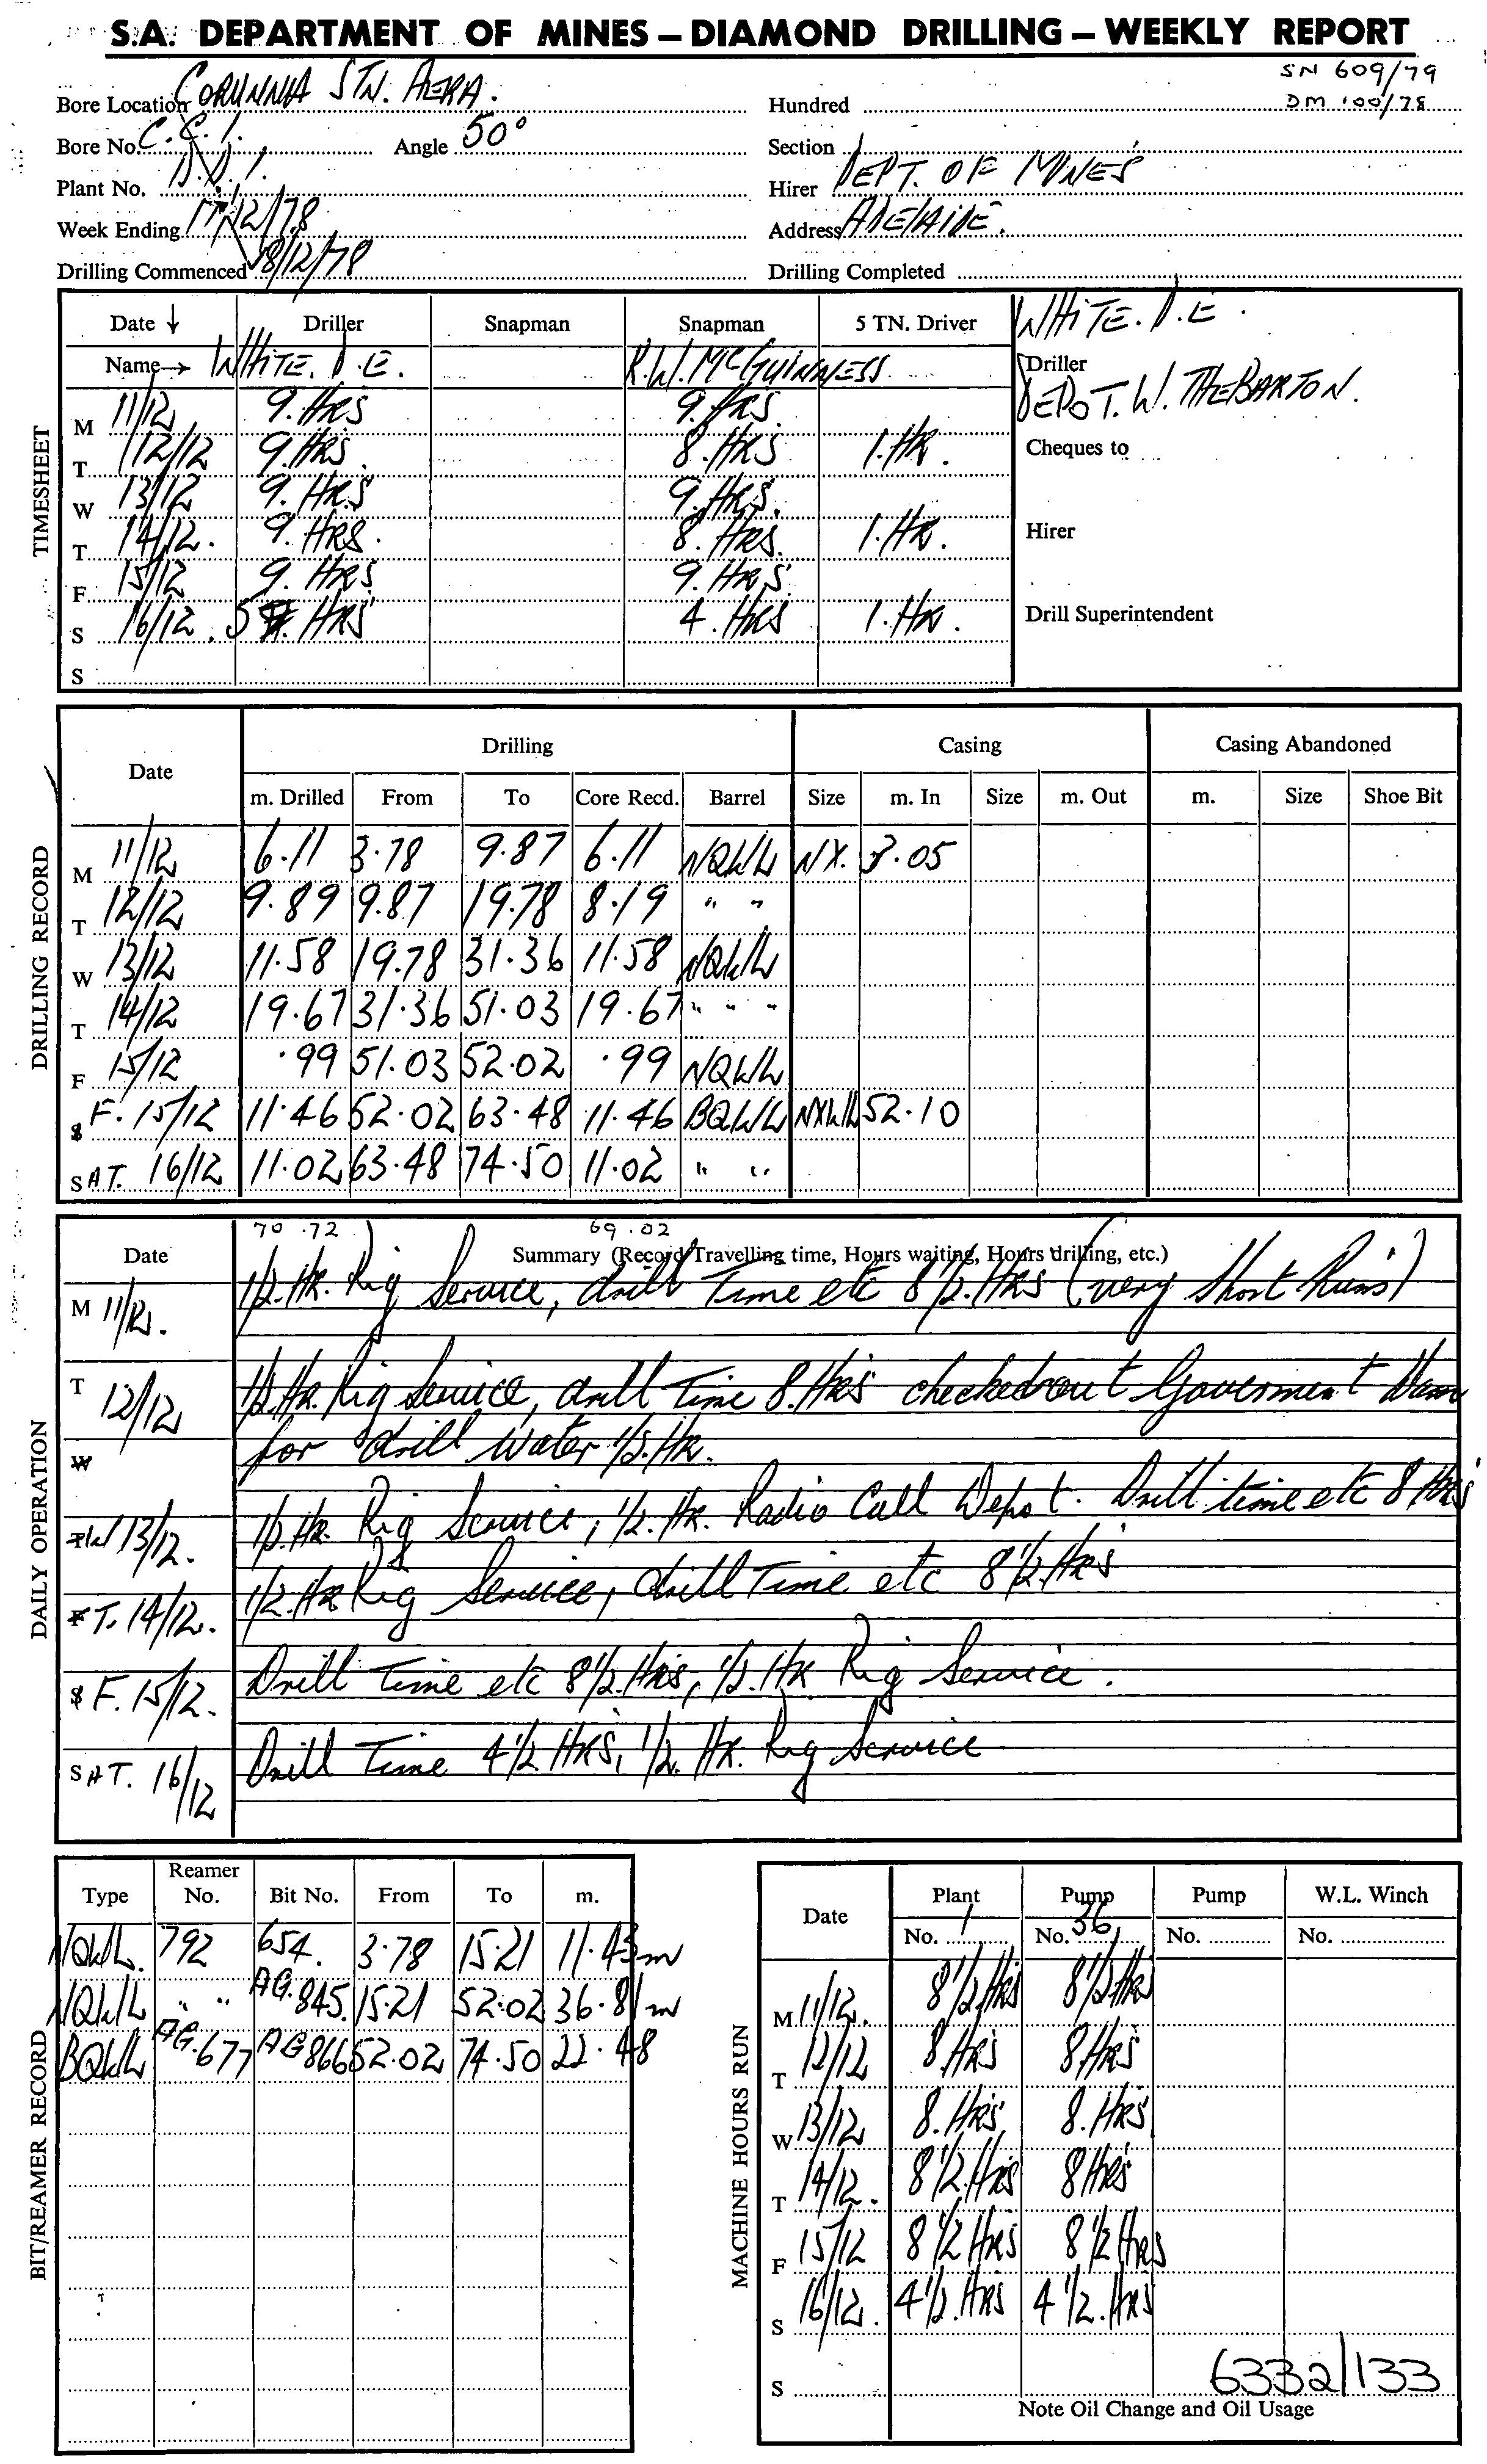 S.A. DEPARTMENT OF MINES – DIAMOND DRILLING – WEEKLY REPORT
SN 609/79
DM 100/78
Bore Location CORUNNA STN. AERA. Hundred
Bore No. C.C.1. Angle 50° Section
Plant No. D.D.1. Hirer DEPT. OF MINES
Week Ending 17/12/78 Address ADELAIDE.
Drilling Commenced 8/12/78 Drilling Completed
TIMESHEET
Date ↓ Driller Snapman Snapman 5 TN. Driver WHITE. D.E.
Name → WHITE. D.E. R.W. McGUINNESS Driller
M 11/12 9. HRS 9. HRS. DEPOT. W. THEBARTON.
T 12/12 9. HRS. 8. HRS 1. HR. Cheques to
W 13/12 9. HRS 9. HRS.
T 14/12. 9. HRS. 8. HRS. 1. HR. Hirer
F 15/12 9. HRS 9. HRS.
S 16/12. 5 HRS 4. HRS 1. HR. Drill Superintendent
S
DRILLING RECORD
Date Drilling Casing Casing Abandoned
m. Drilled From To Core Recd. Barrel Size m. In Size m. Out m. Size Shoe Bit
M 11/12 6.11 3.78 9.87 6.11 NQWL NX. 3.05
T 12/12 9.89 9.87 19.78 8.19 " "
W 13/12 11.58 19.78 31.36 11.58 NQWL
T 14/12 19.67 31.36 51.03 19.67 " " "
F 15/12 .99 51.03 52.02 .99 NQWL
S F. 15/12 11.46 52.02 63.48 11.46 BQWL NXWL 52.10
SAT. 16/12 11.02 63.48 74.50 11.02 " "
70.72 69.02
DAILY OPERATION
Date Summary (Record Travelling time, Hours waiting, Hours drilling, etc.)
M 11/12. 1/2. Hr. Rig Service, drill Time etc 8 1/2. Hrs (very Short Runs)
T 12/12 1/2. Hr. Rig Service, drill Time 8. Hrs checked out Goverment Dam
for drill water 1/2. Hr.
W
W 13/12. 1/2. Hr. Rig Service, 1/2. Hr. Radio Call Depot. Drill time etc 8 Hrs
T. 14/12. 1/2. Hr Rig Service, drill Time etc 8 1/2. Hrs
S F. 15/12. Drill Time etc 8 1/2. Hrs, 1/2. Hr Rig Service.
SAT. 16/12 Drill Time 4 1/2 HRS, 1/2. Hr. Rig Service
BIT/REAMER RECORD
Type Reamer No. Bit No. From To m.
NQWL. 792 654. 3.78 15.21 11.43 m
NQWL " " AG.845. 15.21 52.02 36.81 m
BQWL AG.677 AG866 52.02 74.50 22.48
MACHINE HOURS RUN
Date Plant Pump Pump W.L. Winch
No. 1 No. 36 No. No.
M 11/12. 8 1/2 Hrs 8 1/2 Hrs
T 12/12 8 Hrs 8 Hrs
W 13/12 8. Hrs 8. Hrs
T 14/12. 8 1/2. Hrs 8 Hrs
F 15/12 8 1/2 Hrs 8 1/2 Hrs
S 16/12. 4 1/2. Hrs 4 1/2. Hrs
S
6332/133
Note Oil Change and Oil Usage